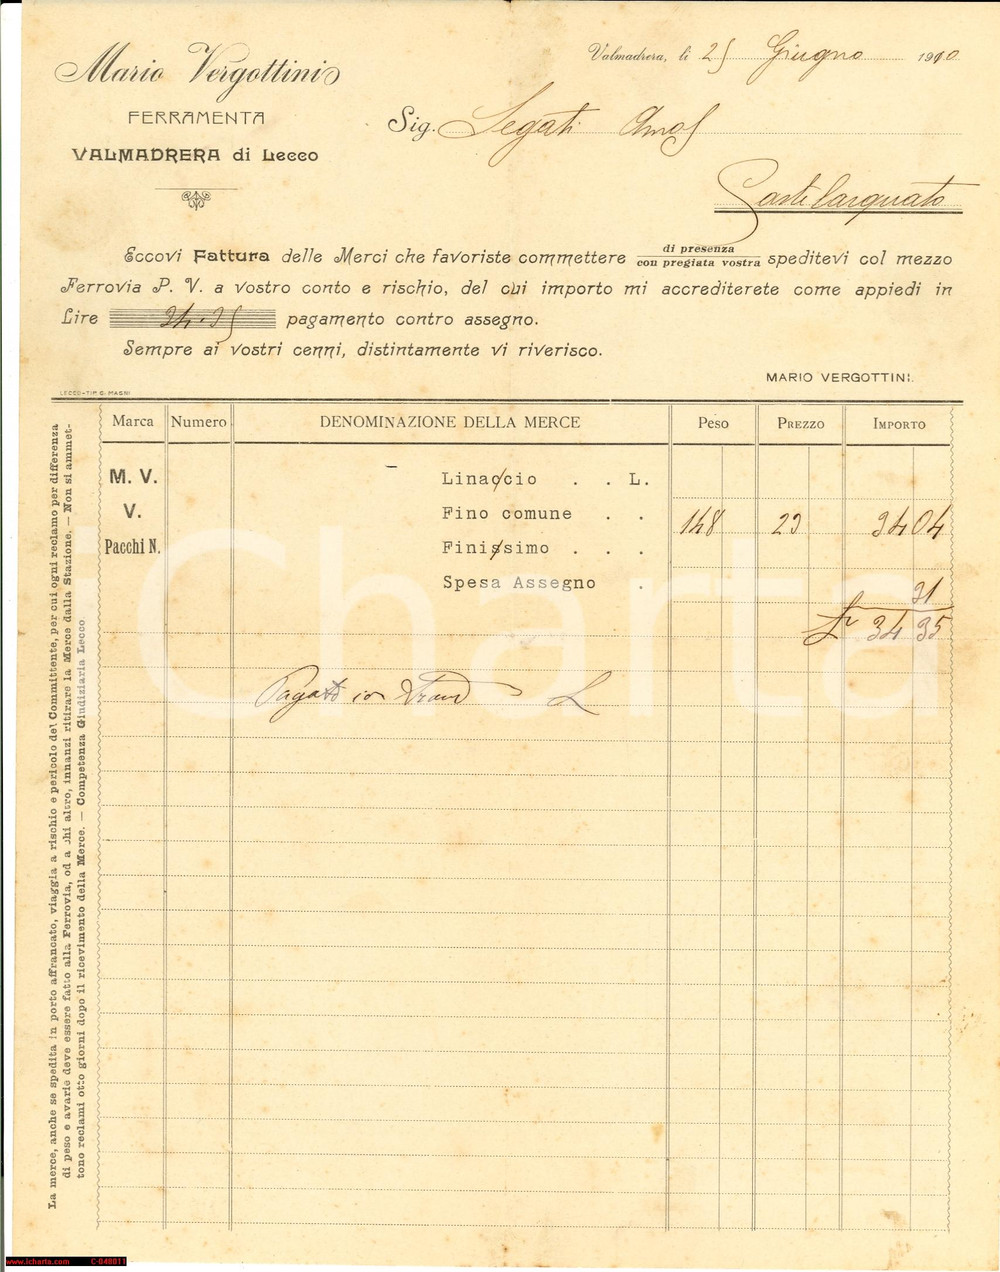 Mario Vergottini
FERRAMENTA
VALMADRERA di Lecco
Valmadrera, li 25 Giugno 1910
Sig. Segati Amos
Castelarquato
Eccovi Fattura delle Merci che favoriste commettere di presenza / con pregiata vostra speditevi col mezzo
Ferrovia P. V. a vostro conto e rischio, del cui importo mi accrediterete come appiedi in
Lire 34.35 pagamento contro assegno.
Sempre ai vostri cenni, distintamente vi riverisco.
MARIO VERGOTTINI.
LECCO-TIP. G. MAGNI
Marca Numero DENOMINAZIONE DELLA MERCE Peso PREZZO IMPORTO
M. V. Linaccio . . L.
V. Fino comune . . 148 23 34 04
Pacchi N. Finissimo . . .
Spesa Assegno . 31
Lr 34 35
Pagato
La merce, anche se spedita in porto affrancato, viaggia a rischio e pericolo del Committente, per cui ogni reclamo per differenza
di peso e avarie deve essere fatto alla Ferrovia, od a chi altro, innanzi ritirare la Merce dalla Stazione. — Non si ammet-
tono reclami otto giorni dopo il ricevimento della Merce. — Competenza Giudiziaria Lecco
iCharta
www.icharta.com C-048811